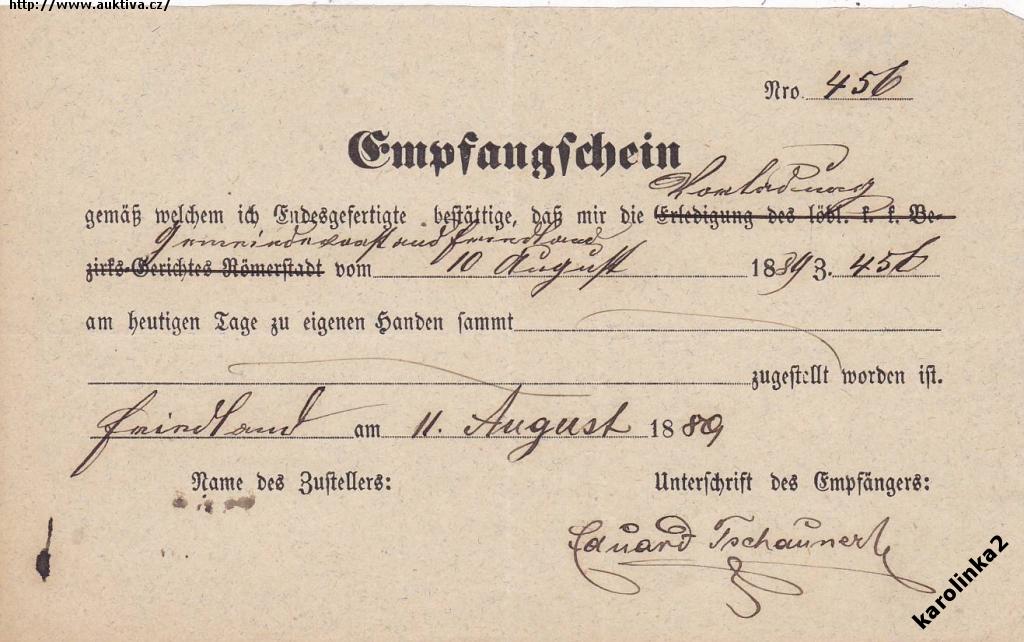 http://www.auktiva.cz/
Nro. 456
Empfangschein
Vorladung
gemäß welchem ich Endesgefertigte bestättige, daß mir die Erledigung des löbl. k. k. Be-
Gemeindevorstand Friedland
zirks-Gerichtes Römerstadt vom 10 August 1889 3. 456
am heutigen Tage zu eigenen Handen sammt
zugestellt worden ist.
Friedland am 11. August 1889
Name des Zustellers: Unterschrift des Empfängers:
Eduard Tschauner
karolinka2